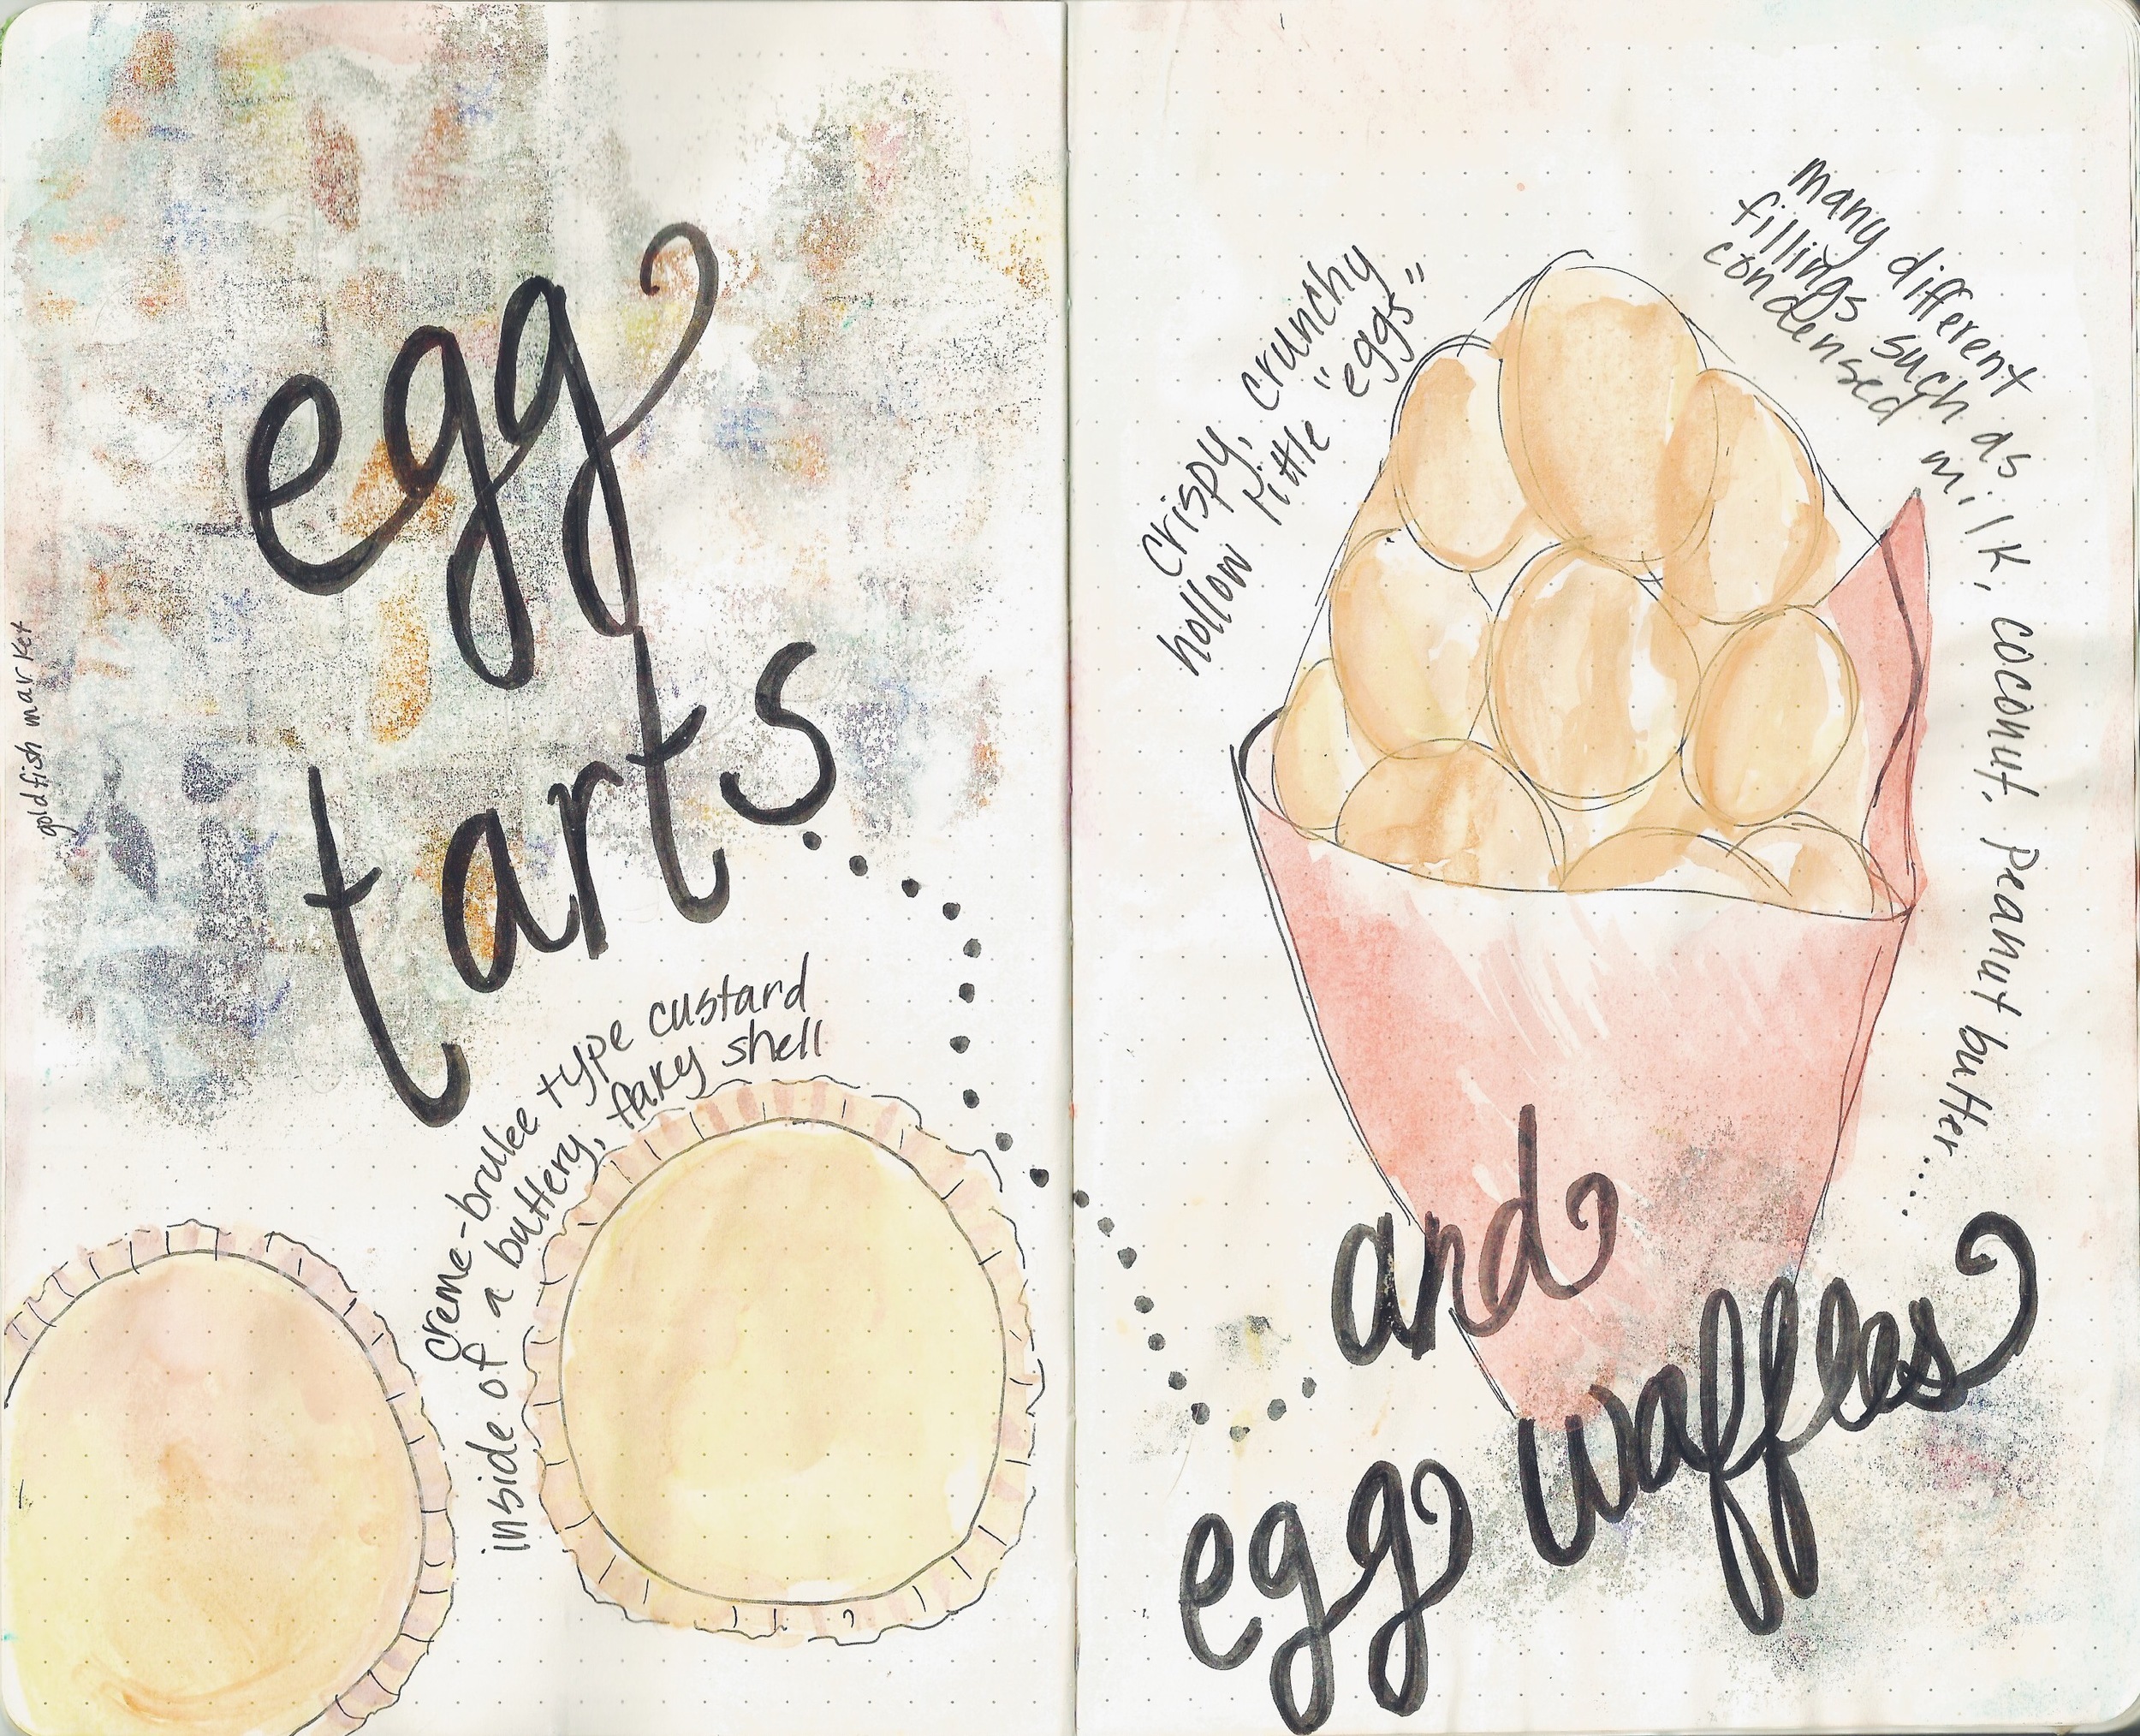 goldfish market
egg
tarts
creme-brulee type custard
inside of a buttery, flaky shell
crispy, crunchy
hollow little "eggs"
many different
fillings such as
condensed milk, coconut, peanut butter.....
and
egg waffles